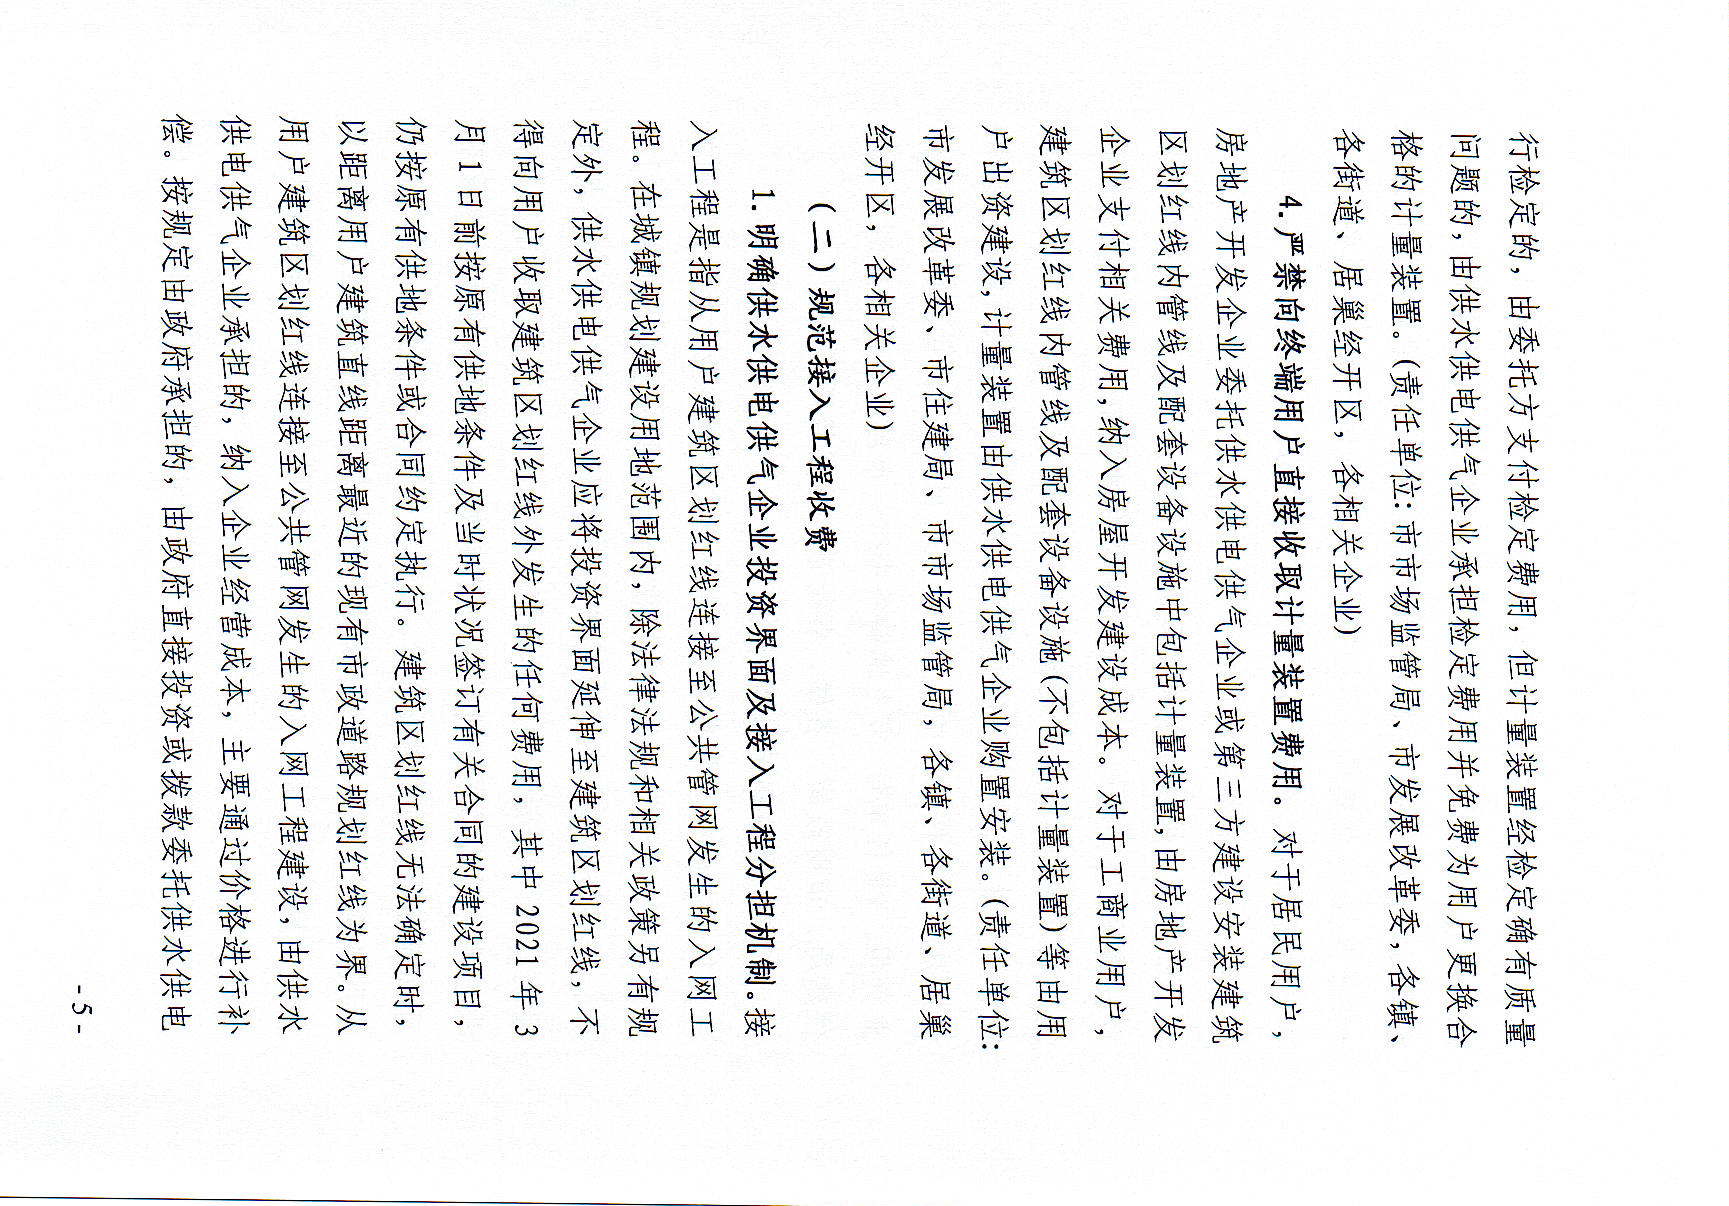 行检定的，由委托方支付检定费用，但计量装置经检定确有质量
问题的，由供水供电供气企业承担检定费用并免费为用户更换合
格的计量装置。（责任单位：市市场监管局、市发展改革委，各镇、
各街道、居巢经开区，各相关企业）
4.严禁向终端用户直接收取计量装置费用。对于居民用户，
房地产开发企业委托供水供电供气企业或第三方建设安装建筑
区划红线内管线及配套设备设施中包括计量装置，由房地产开发
企业支付相关费用，纳入房屋开发建设成本。对于工商业用户，
建筑区划红线内管线及配套设备设施（不包括计量装置）等由用
户出资建设，计量装置由供水供电供气企业购置安装。（责任单位：
市发展改革委、市住建局、市市场监管局，各镇、各街道、居巢
经开区，各相关企业）
（二）规范接入工程收费
1.明确供水供电供气企业投资界面及接入工程分担机制。接
入工程是指从用户建筑区划红线连接至公共管网发生的入网工
程。在城镇规划建设用地范围内，除法律法规和相关政策另有规
定外，供水供电供气企业应将投资界面延伸至建筑区划红线，不
得向用户收取建筑区划红线外发生的任何费用，其中 2021 年 3
月 1 日前按原有供地条件及当时状况签订有关合同的建设项目，
仍按原有供地条件或合同约定执行。建筑区划红线无法确定时，
以距离用户建筑直线距离最近的现有市政道路规划红线为界。从
用户建筑区划红线连接至公共管网发生的入网工程建设，由供水
供电供气企业承担的，纳入企业经营成本，主要通过价格进行补
偿。按规定由政府承担的，由政府直接投资或拨款委托供水供电
- 5 -